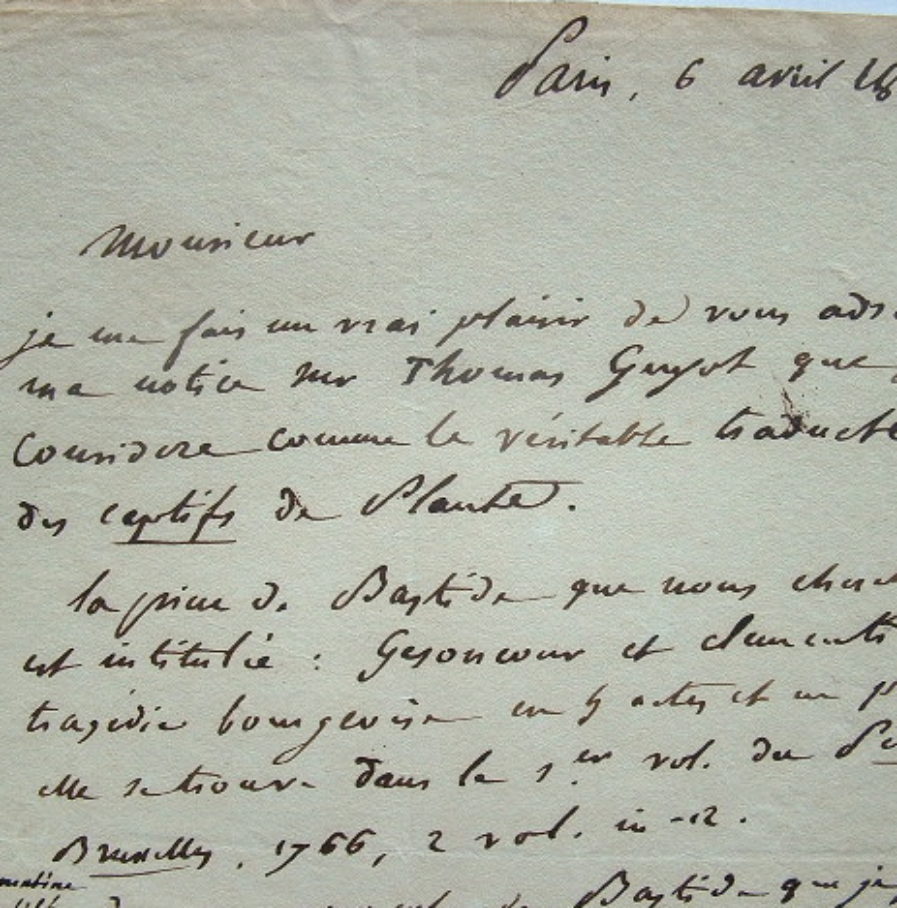 Paris, 6 avril 18
Monsieur
je me fais un vrai plaisir de vous adr
ma notice sur Thomas Guyot que
Considere comme le véritable traducte
des captifs de Plaute.
la piece de Bastide que nous cherch
est intitulée : Gesoncour et Clementi
tragédie bourgeoise en 5 actes et en p
elle se trouve dans le 1er vol. du
Bruxelles, 1766, 2 vol. in-12.
Bastide que je